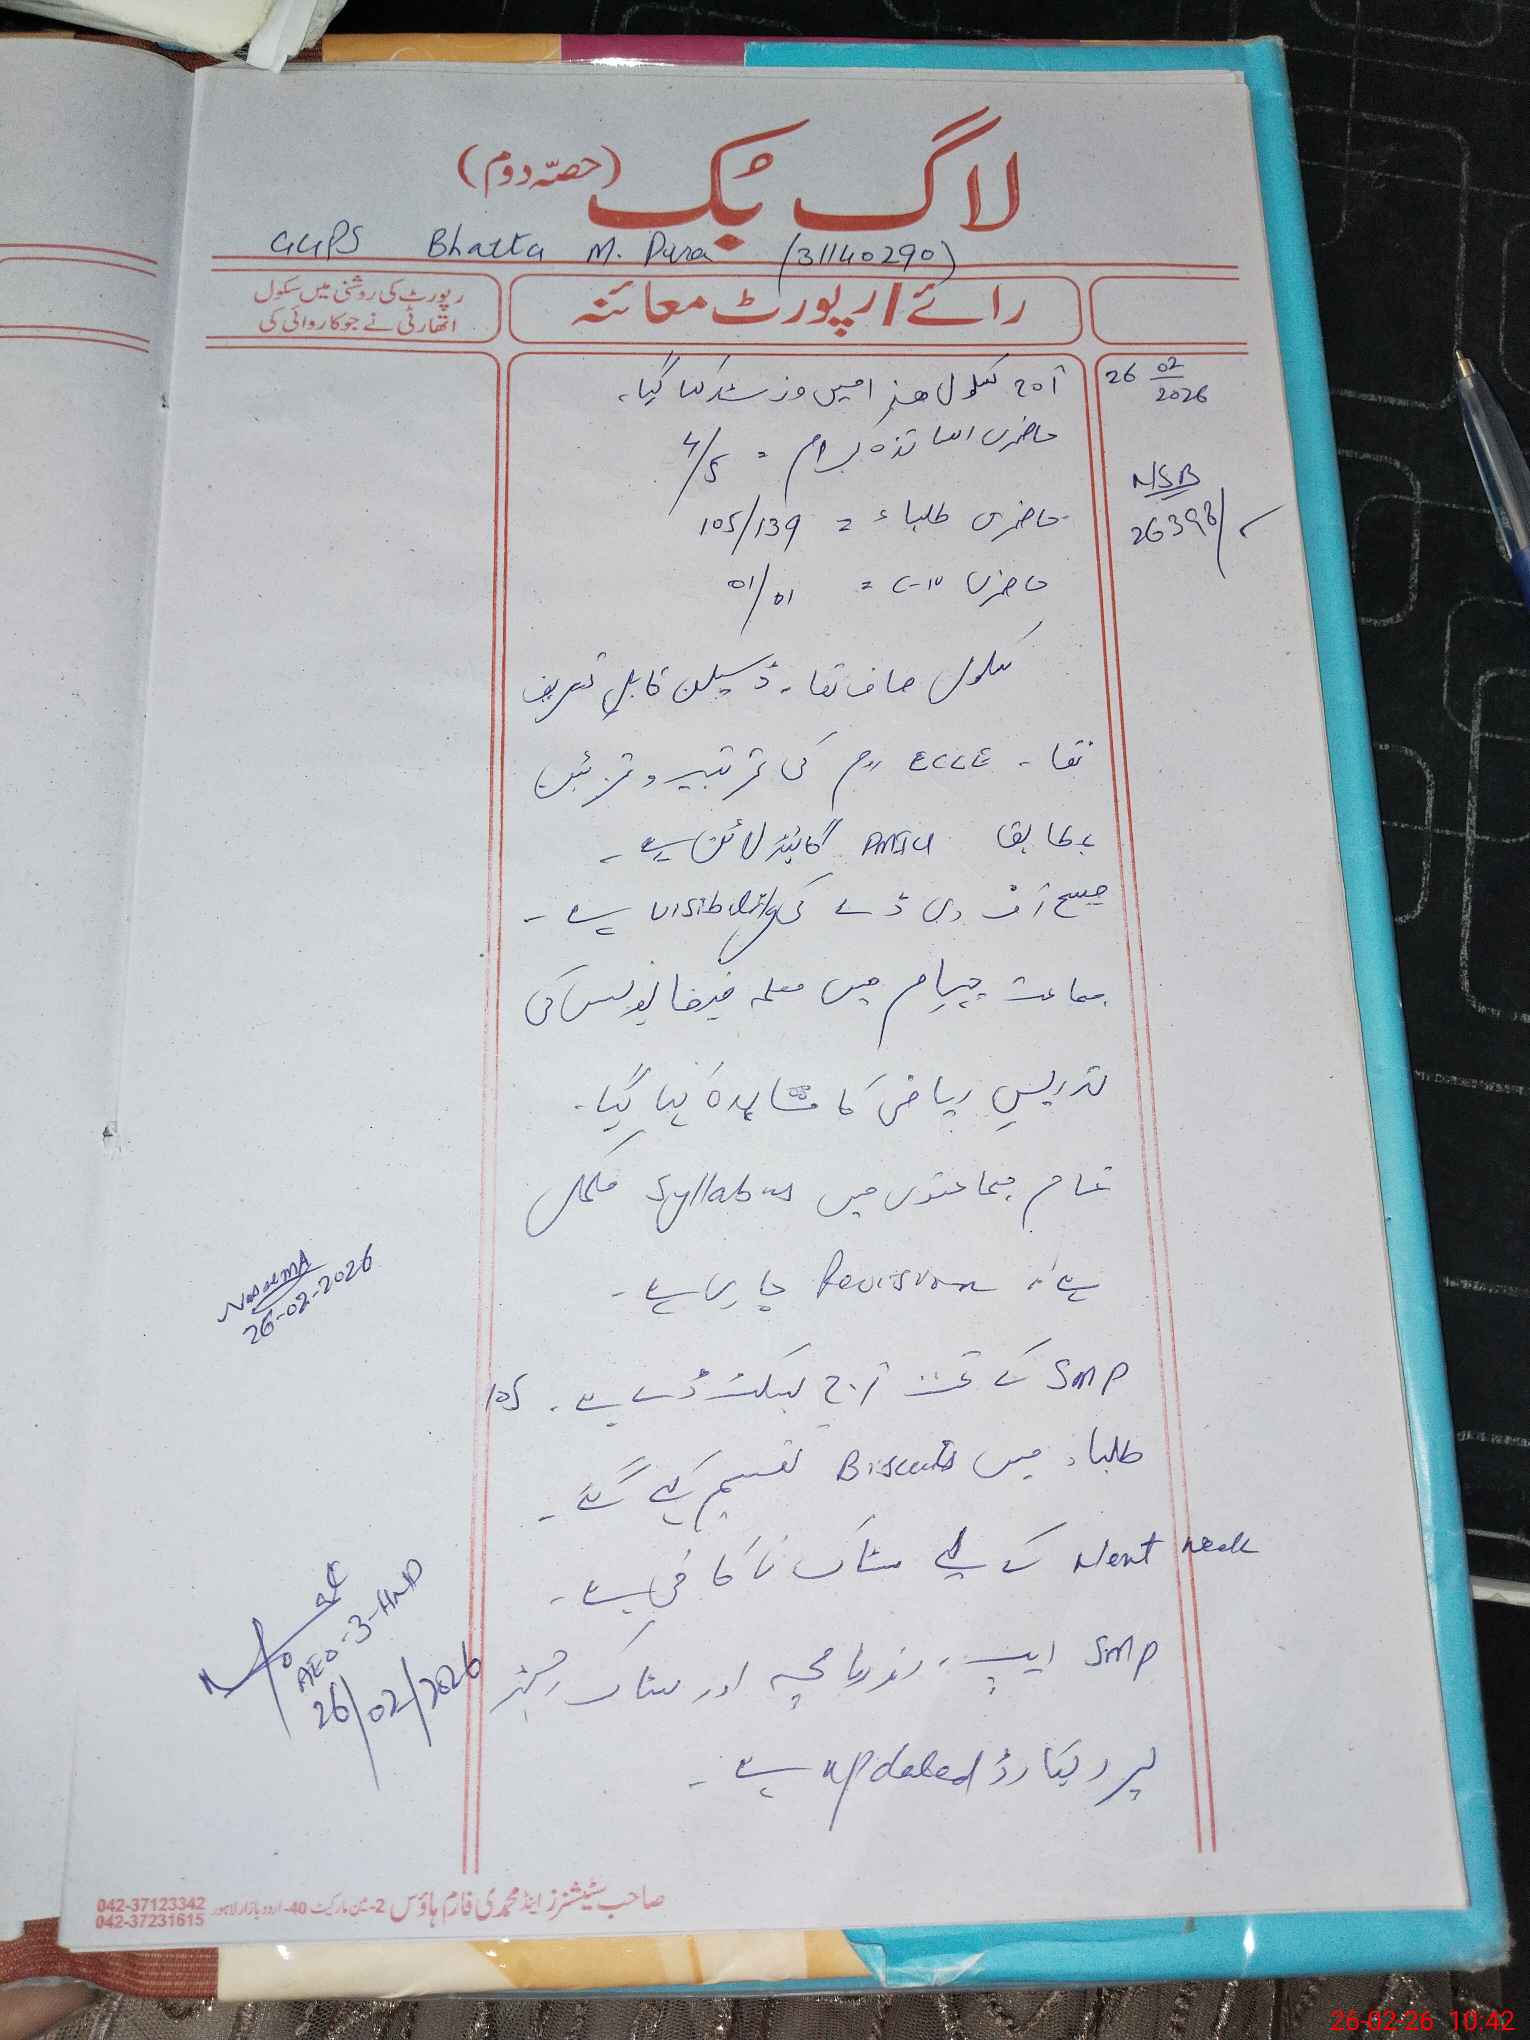 لاگ بک (حصہ دوم)
GGPS Bhatta M. Pura (31140290)
رائے / رپورٹ معائنہ
رپورٹ کی روشنی میں سکول
اتھارٹی نے جو کاروائی کی
26 02/2026
آج سکول ھذا میں وزٹ کیا گیا۔
حاضری اساتذہ کرام = 4/5
NSB
حاضری طلباء = 105/139
حاضری C-IV = 01/01
سکول صاف تھا۔ ڈسپلن قابلِ تعریف
تھا۔ ECCE روم کی ترتیب و تزئین
بمطابق PMIU گائیڈ لائن ہے۔
میسج آف دی ڈے کی visibility ہے۔
جماعت چہارم میں معلمہ یونس کی
تدریسِ ریاضی کا مشاہدہ کیا گیا۔
تمام جماعتوں میں Syllabus مکمل
ہے، Revision جاری ہے۔
SMP کے تحت آج بسکٹ ڈے ہے۔ 105
طلباء میں Biscuits تقسیم کیے گئے۔
Next week کے لیے سٹاک ناکافی ہے۔
SMP ایپ، روزنامچہ اور سٹاک رجسٹر
پر ریکارڈ updated ہے۔
26-02-2026
AEO-3-
26/02/2026
صاحب سٹیشنرز اینڈ محمدی فارم ہاؤس 2-مین مارکیٹ 40-اردو بازار لاہور
042-37123342
042-37231615
26-02-26 10:42